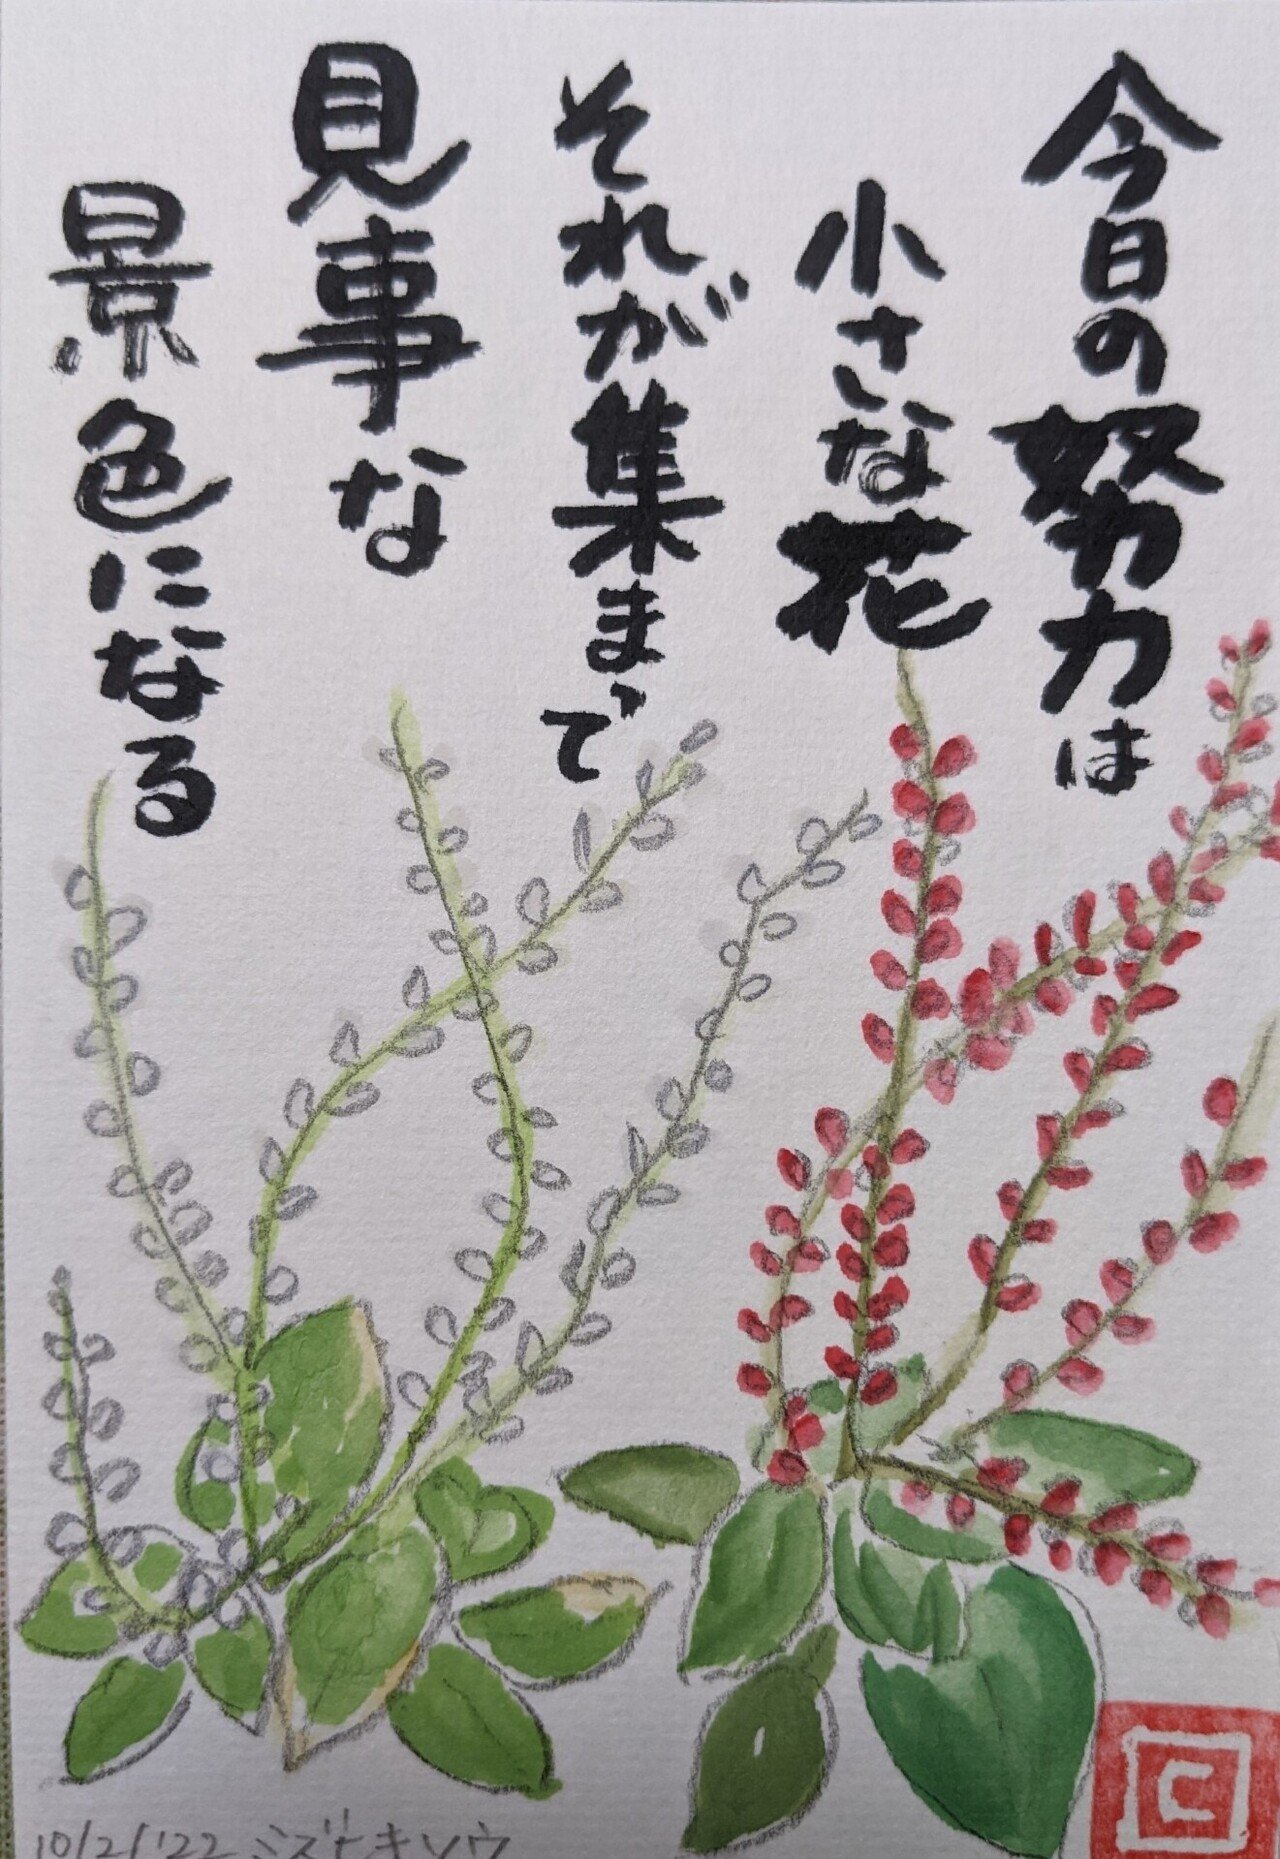 今日の努力は
小さな花
それが集まって
見事な
景色になる
10/2/'22 ミズヒキソウ